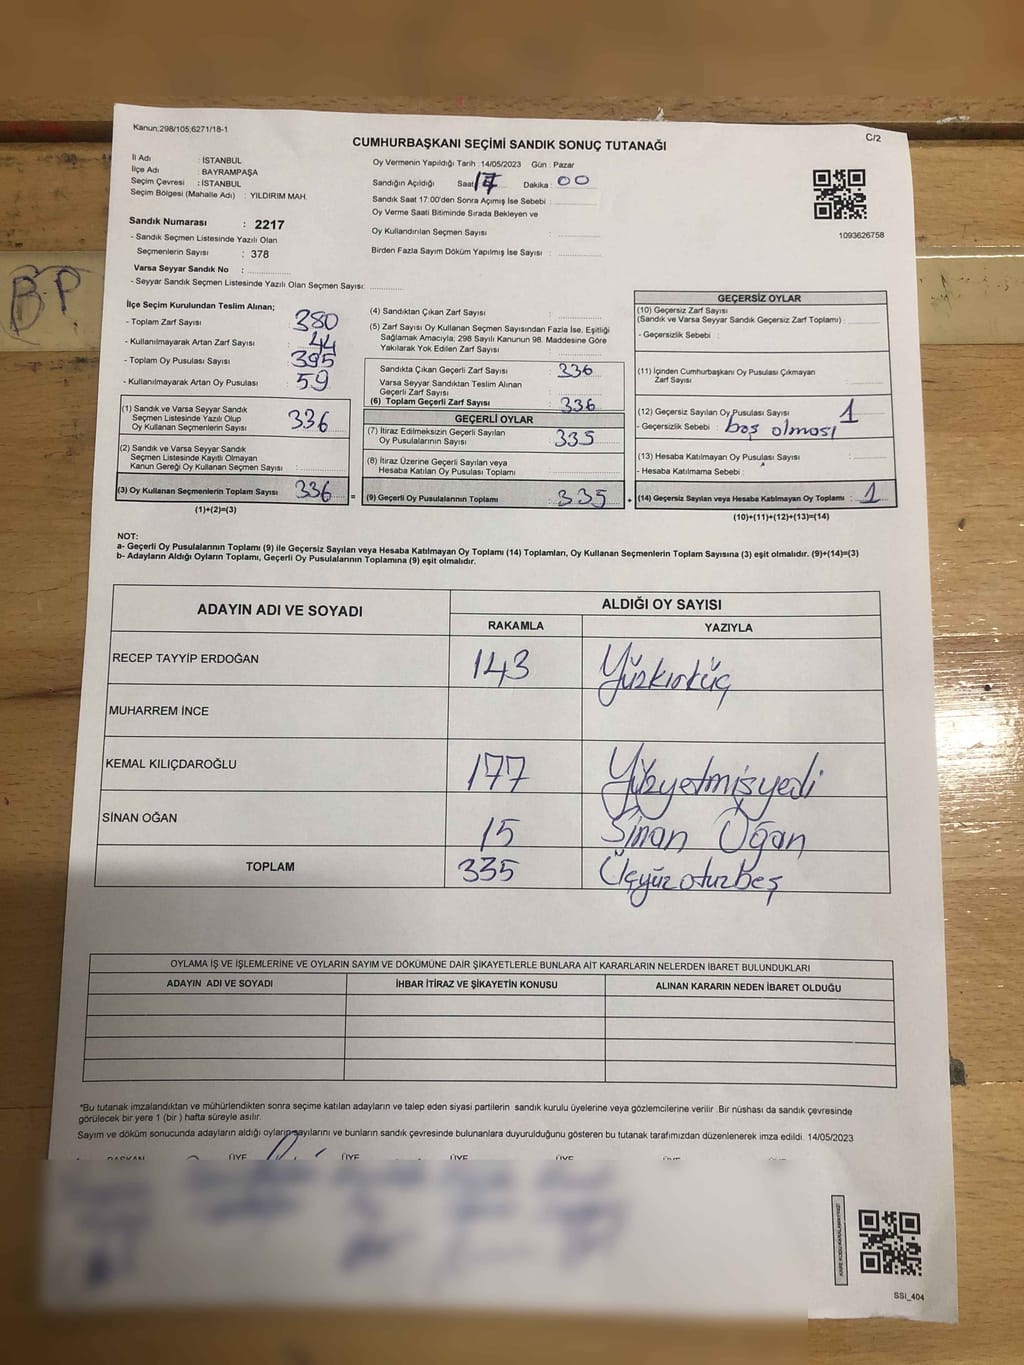 Kanun;298/105;6271/18-1
C/2
CUMHURBAŞKANI SEÇİMİ SANDIK SONUÇ TUTANAĞI
İl Adı : İSTANBUL
İlçe Adı : BAYRAMPAŞA
Seçim Çevresi : İSTANBUL
Seçim Bölgesi (Mahalle Adı) : YILDIRIM MAH.
Oy Vermenin Yapıldığı Tarih :14/05/2023 Gün : Pazar
Sandığın Açıldığı Saat 17 Dakika : 00
Sandık Saat 17:00'den Sonra Açımış İse Sebebi :
Oy Verme Saati Bitiminde Sırada Bekleyen ve
Oy Kullandırılan Seçmen Sayısı :
Birden Fazla Sayım Döküm Yapılmış İse Sayısı :
1093626758
Sandık Numarası : 2217
- Sandık Seçmen Listesinde Yazılı Olan
Seçmenlerin Sayısı : 378
Varsa Seyyar Sandık No :
- Seyyar Sandık Seçmen Listesinde Yazılı Olan Seçmen Sayısı:
BP
İlçe Seçim Kurulundan Teslim Alınan;
- Toplam Zarf Sayısı : 380
- Kullanılmayarak Artan Zarf Sayısı : 44
- Toplam Oy Pusulası Sayısı : 395
- Kullanılmayarak Artan Oy Pusulası : 59
(1) Sandık ve Varsa Seyyar Sandık
Seçmen Listesinde Yazılı Olup
Oy Kullanan Seçmenlerin Sayısı : 336
(2) Sandık ve Varsa Seyyar Sandık
Seçmen Listesinde Kayıtlı Olmayan
Kanun Gereği Oy Kullanan Seçmen Sayısı :
(3) Oy Kullanan Seçmenlerin Toplam Sayısı : 336 =
(1)+(2)=(3)
(4) Sandıktan Çıkan Zarf Sayısı :
(5) Zarf Sayısı Oy Kullanan Seçmen Sayısından Fazla İse, Eşitliği
Sağlamak Amacıyla; 298 Sayılı Kanunun 98. Maddesine Göre
Yakılarak Yok Edilen Zarf Sayısı :
Sandıkta Çıkan Geçerli Zarf Sayısı : 336
Varsa Seyyar Sandıktan Teslim Alınan
Geçerli Zarf Sayısı :
(6) Toplam Geçerli Zarf Sayısı : 336
GEÇERLİ OYLAR
(7) İtiraz Edilmeksizin Geçerli Sayılan
Oy Pusulalarının Sayısı : 335
(8) İtiraz Üzerine Geçerli Sayılan veya
Hesaba Katılan Oy Pusulası Toplamı :
(9) Geçerli Oy Pusulalarının Toplamı : 335 +
GEÇERSİZ OYLAR
(10) Geçersiz Zarf Sayısı
(Sandık ve Varsa Seyyar Sandık Geçersiz Zarf Toplamı) :
- Geçersizlik Sebebi :
(11) İçinden Cumhurbaşkanı Oy Pusulası Çıkmayan
Zarf Sayısı :
(12) Geçersiz Sayılan Oy Pusulası Sayısı : 1
- Geçersizlik Sebebi : boş olması
(13) Hesaba Katılmayan Oy Pusulası Sayısı :
- Hesaba Katılmama Sebebi :
(14) Geçersiz Sayılan veya Hesaba Katılmayan Oy Toplamı : 1
(10)+(11)+(12)+(13)=(14)
NOT:
a- Geçerli Oy Pusulalarının Toplamı (9) ile Geçersiz Sayılan veya Hesaba Katılmayan Oy Toplamı (14) Toplamları, Oy Kullanan Seçmenlerin Toplam Sayısına (3) eşit olmalıdır. (9)+(14)=(3)
b- Adayların Aldığı Oyların Toplamı, Geçerli Oy Pusulalarının Toplamına (9) eşit olmalıdır.
ADAYIN ADI VE SOYADI ALDIĞI OY SAYISI
RAKAMLA YAZIYLA
RECEP TAYYİP ERDOĞAN 143 Yüzkırküç
MUHARREM İNCE
KEMAL KILIÇDAROĞLU 177 Yüzyetmişyedi
SİNAN OĞAN 15 Sinan Oğan
TOPLAM 335 Üçyüzotuzbeş
OYLAMA İŞ VE İŞLEMLERİNE VE OYLARIN SAYIM VE DÖKÜMÜNE DAİR ŞİKAYETLERLE BUNLARA AİT KARARLARIN NELERDEN İBARET BULUNDUKLARI
ADAYIN ADI VE SOYADI İHBAR İTİRAZ VE ŞİKAYETİN KONUSU ALINAN KARARIN NEDEN İBARET OLDUĞU
*Bu tutanak imzalandıktan ve mühürlendikten sonra seçime katılan adayların ve talep eden siyasi partilerin sandık kurulu üyelerine veya gözlemcilerine verilir .Bir nüshası da sandık çevresinde
görülecek bir yere 1 (bir ) hafta süreyle asılır.
Sayım ve döküm sonucunda adayların aldığı oyların sayılarını ve bunların sandık çevresinde bulunanlara duyurulduğunu gösteren bu tutanak tarafımızdan düzenlenerek imza edildi. 14/05/2023
BAŞKAN ÜYE ÜYE ÜYE ÜYE ÜYE ÜYE
SSİ_404